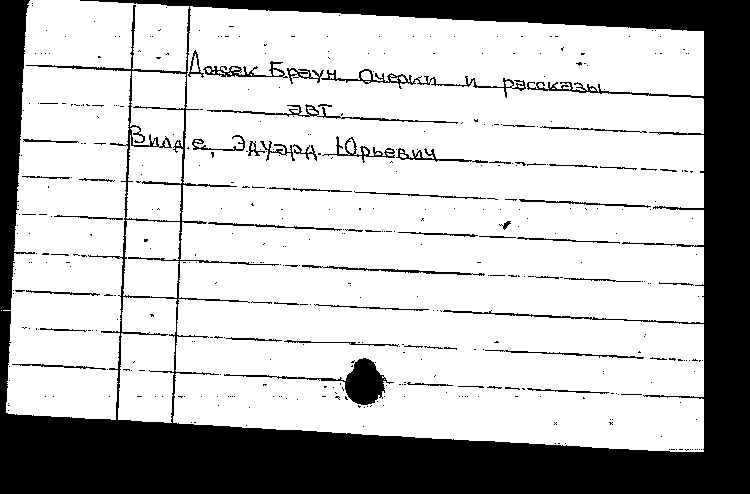 Джек Браун. Очерки и рассказы
авт.
Вилде, Эдуард Юрьевич